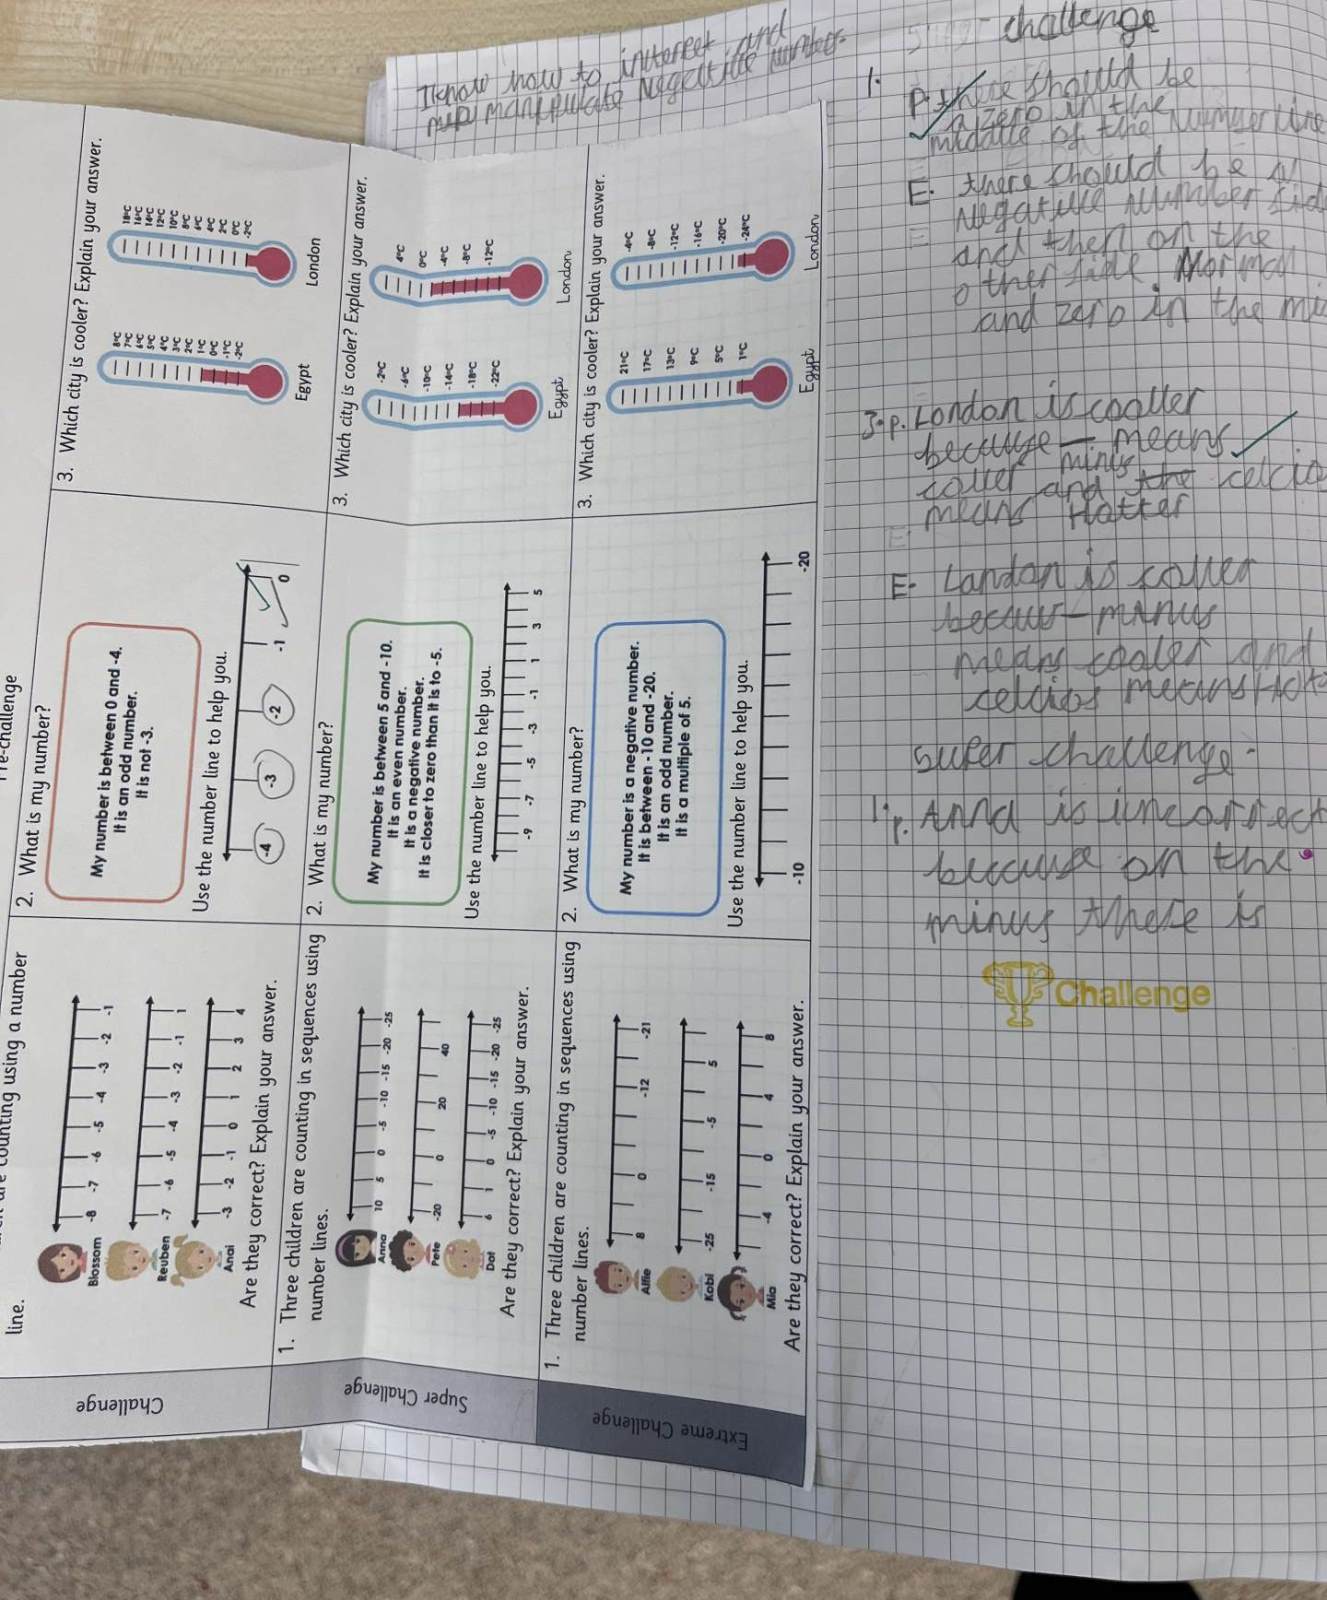 Pre-challenge
are counting using a number
line.
-8 -7 -6 -5 -4 -3 -2 -1
Blossom
-7 -6 -5 -4 -3 -2 -1 1
Reuben
-3 -2 -1 0 1 2 3 4
Anai
Are they correct? Explain your answer.
2. What is my number?
My number is between 0 and -4.
It is an odd number.
It is not -3.
Use the number line to help you.
-4 -3 -2 -1 0
3. Which city is cooler? Explain your answer.
8°C
7°C
6°C
5°C
4°C
3°C
2°C
1°C
0°C
-1°C
-2°C
Egypt
18°C
16°C
14°C
12°C
10°C
8°C
6°C
4°C
2°C
0°C
-2°C
London
Challenge
1. Three children are counting in sequences using
number lines.
10 5 0 -5 -10 -15 -20 -25
Anna
-20 0 20 40
Pete
6 1 0 -5 -10 -15 -20 -25
Dot
Are they correct? Explain your answer.
2. What is my number?
My number is between 5 and -10.
It is an even number.
It is a negative number.
It is closer to zero than it is to -5.
Use the number line to help you.
-9 -7 -5 -3 -1 1 3 5
3. Which city is cooler? Explain your answer.
-2°C
-6°C
-10°C
-14°C
-18°C
-22°C
Egypt
4°C
0°C
-4°C
-8°C
-12°C
London
Super Challenge
1. Three children are counting in sequences using
number lines.
8 0 -12 -21
Alfie
-25 -15 -5 5
Kobi
-4 0 4 8
Mia
Are they correct? Explain your answer.
2. What is my number?
My number is a negative number.
It is between -10 and -20.
It is an odd number.
It is a multiple of 5.
Use the number line to help you.
-10 -20
3. Which city is cooler? Explain your answer.
21°C
17°C
13°C
9°C
5°C
1°C
Egypt
-4°C
-8°C
-12°C
-16°C
-20°C
-24°C
London
Extreme Challenge
I know how to interret and
manipulate Negative numbers.
challenge
1. P. there should be
a zero in the
middle of the Number line
E. there should be a
Negative Number sid
and then on the
other side Normal
and zero in the mi
3. P. London is cooller
because — means
coller minus and the celcio
means Hotter
E. London is coller
becaus — minus
means cooler and
celcios means Hot
super challenge.
1. P. Anna is incorrect
because on the
minus there is
Challenge